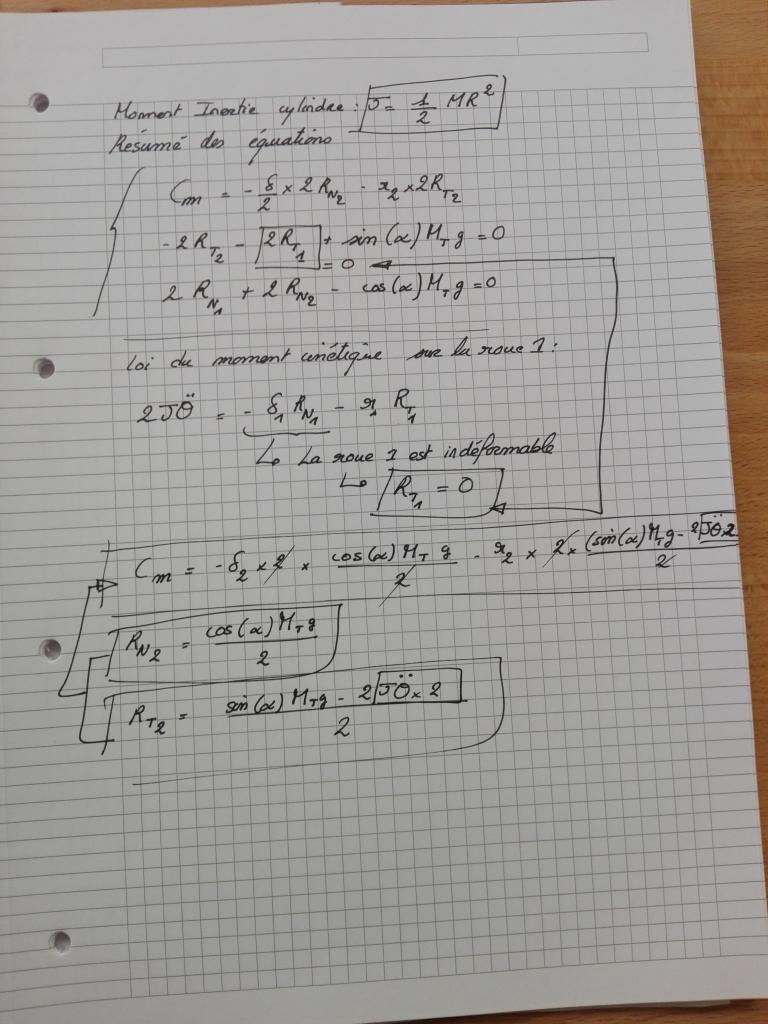 Moment Inertie cylindre : J = 1/2 MR²
Résumé des équations
Cm = - δ/2 × 2 R_N2 - r_2 × 2R_T2
- 2 R_T2 - 2R_T1 + sin(α) M_T g = 0
= 0
2 R_N1 + 2 R_N2 - cos(α) M_T g = 0
Loi du moment cinétique sur la roue 1 :
2Jθ̈ = - δ_1 R_N1 - r_1 R_T1
↳ La roue 1 est indéformable
↳ R_T1 = 0
Cm = - δ_2 × 2 × cos(α) M_T g / 2 - r_2 × 2 × (sin(α) M_T g - 2 Jθ̈ × 2 / 2
R_N2 = cos(α) M_T g / 2
R_T2 = sin(α) M_T g - 2 Jθ̈ × 2 / 2